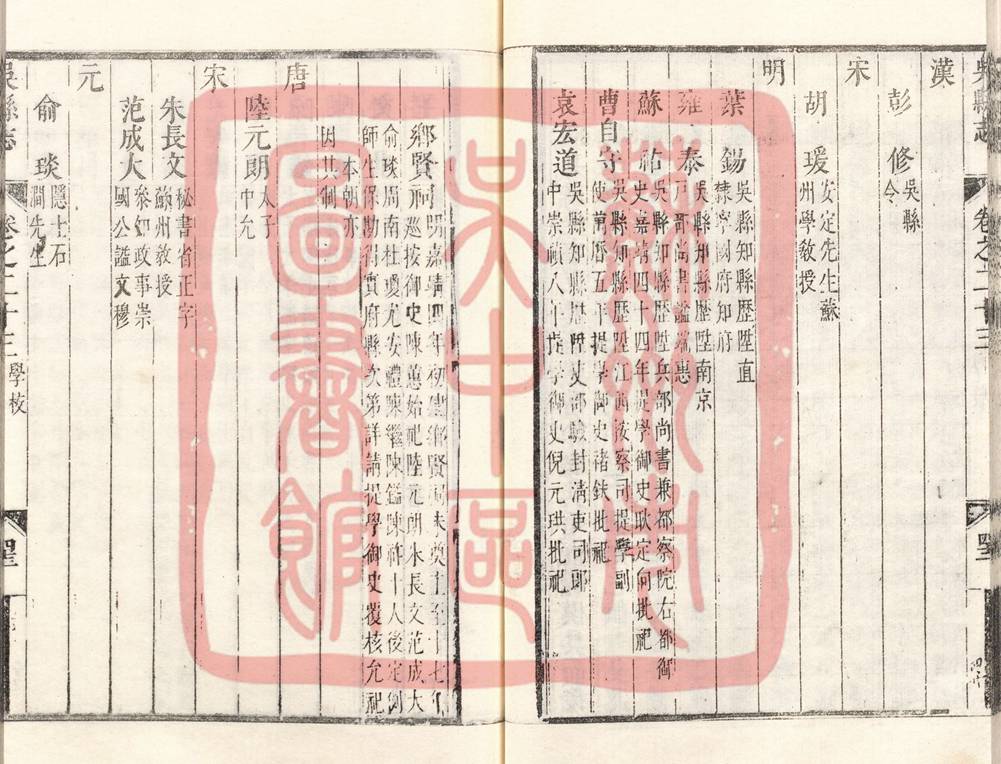 吳縣志 卷之二十三
漢
彭修 吳縣
令
宋
胡瑗 安定先生蘇
州學教授
明
葉錫 吳縣知縣歷陞直
隸寧國府知府
雍泰 吳縣知縣歷陞南京
戶部尚書謚端惠
蘇祐 吳縣知縣歷陞兵部尚書兼都察院右都御
史嘉靖四十四年提學御史耿定向批祀
曹自守 吳縣知縣歷陞江西按察司提學副
使萬曆五年提學御史褚鈇批祀
袁宏道 吳縣知縣歷陞吏部驗封清吏司郎
中崇禎八年提學御史倪元珙批祀
鄉賢祠 明嘉靖四年初建鄉賢祠未奠主至十七年
巡按御史陳蕙始祀陸元朗朱長文范成大
俞琰周南杜瓊尤安禮陳繼陳鎰陳祚十人後定例
師生保勘得實府縣次第詳請提學御史覆核允祀
本朝亦
因其制
唐
陸元朗 太子
中允
宋
朱長文 秘書省正字
蘇州教授
范成大 參知政事崇
國公謚文穆
元
俞琰 隱士石
澗先生
吳縣志 卷之二十三 學校
蘇州大學圖書館